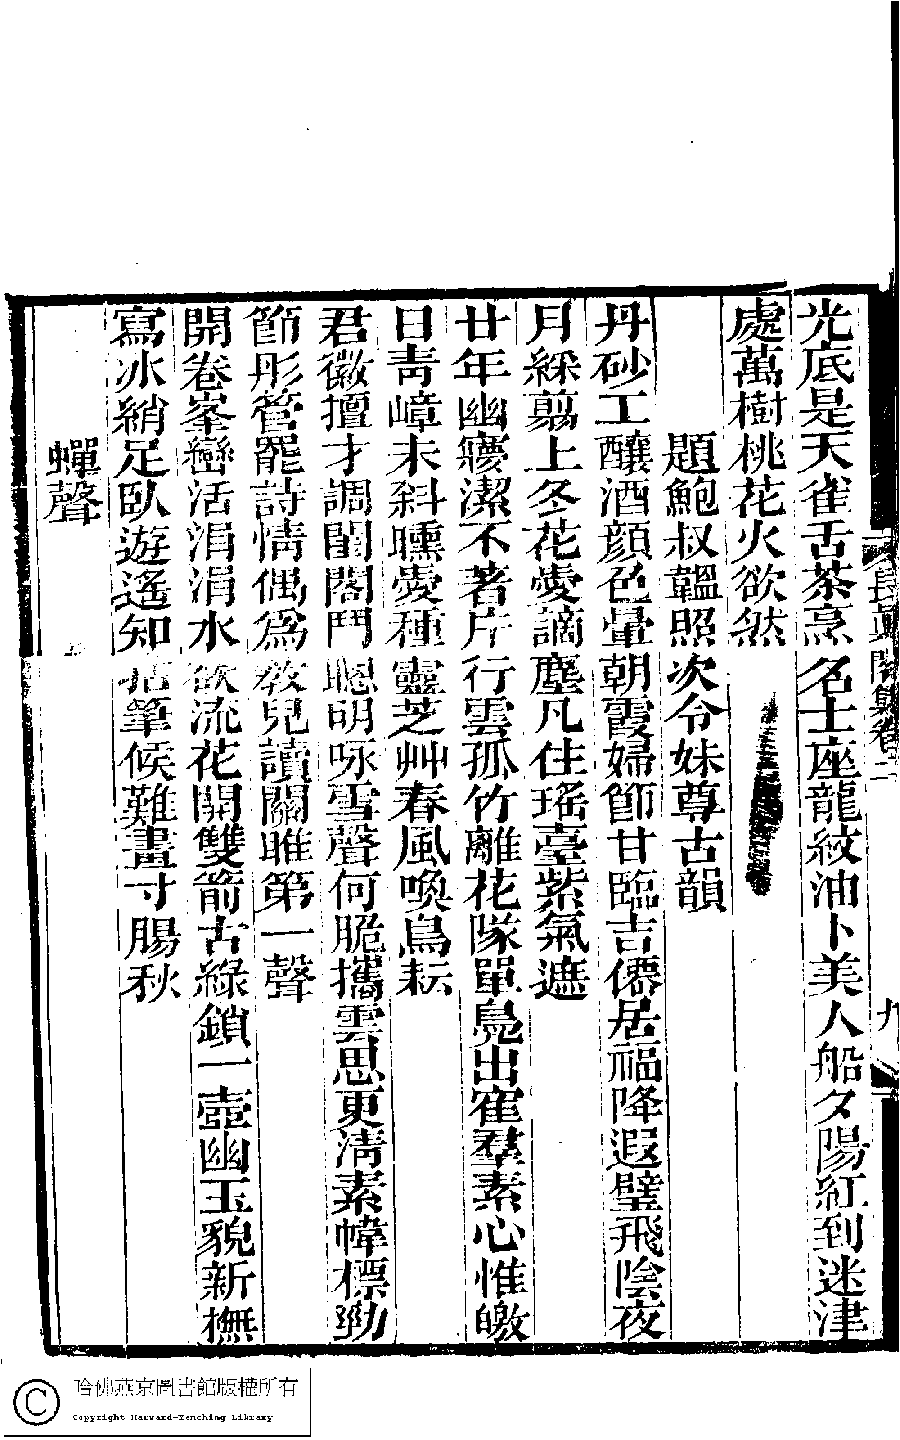 光底是天雀舌茶烹名士座龍紋油卜美人船夕陽紅到迷津
處萬樹桃花火欲然
題鮑叔韞照次令妹尊古韻
丹砂工釀酒顏色暈朝霞婦節甘臨吉僊居福降遐璧飛陰夜
月綵翦上冬花愛謫塵凡住瑤臺紫氣遮
廿年幽癭潔不著片行雲孤竹離花隊單鳧出寉羣素心惟皦
日青嶂未斜曛愛種靈芝艸春風喚鳥耘
君徽擅才調閨閤鬥聰明咏雪聲何脆攜雲思更淸素幃標勁
節彤管罷詩情偶爲敎兒讀關雎第一聲
開卷峯巒活涓涓水欲流花開雙箭古綠鎖一壺幽玉貌新撫
寫冰綃足臥遊遙知拈筆候難畫寸腸秋
蟬聲
長眞閣集卷二
九
哈佛燕京圖書館版權所有
Copyright Harvard-Yenching Library